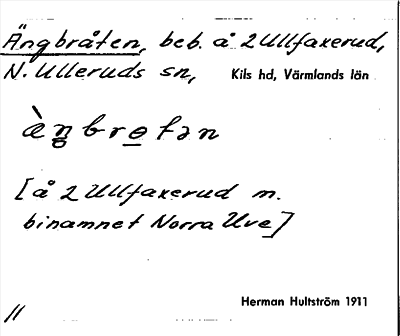 Ängbråten, beb. å 2 Ullfaxerud,
N. Ulleruds sn, Kils hd, Värmlands län
[å 2 Ullfaxerud m.
binamnet Norra Uve]
Herman Hultström 1911
11